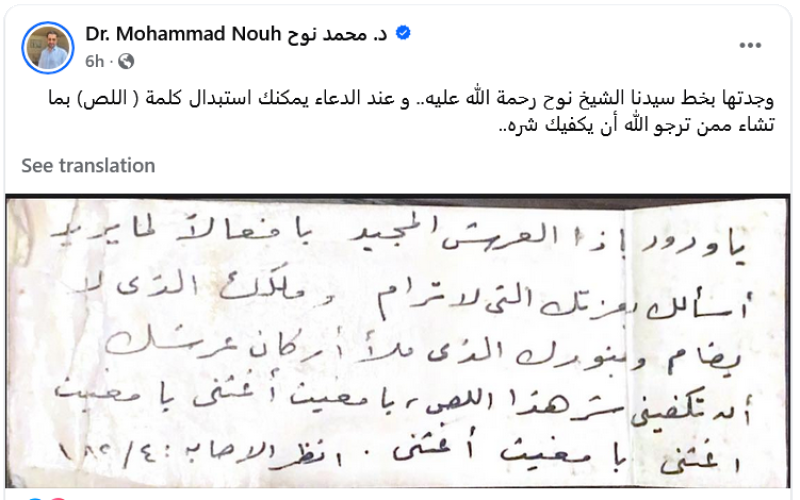 Dr. Mohammad Nouh د. محمد نوح
6h
وجدتها بخط سيدنا الشيخ نوح رحمة الله عليه.. و عند الدعاء يمكنك استبدال كلمة ( اللص) بما
تشاء ممن ترجو الله أن يكفيك شره..
See translation
يا ودود يا ذا العرش المجيد يا فعالاً لما يريد
أسألك بعزتك التى لا ترام وملكك الذى لا
يضام وبنورك الذى ملأ أركان عرشك
أن تكفينى شر هذا اللص، يا مغيث أغثنى يا مغيث
اغثنى يا مغيث أغثنى . انظر الاصابه : ٤/١٨٢